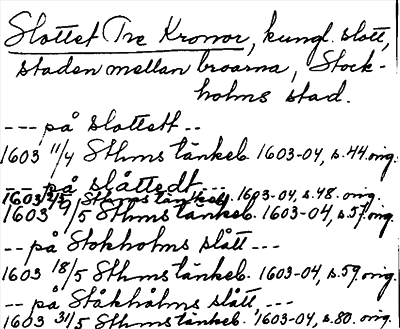 Slottet Tre Kronor, kungl. slott,
staden mellan broarna, Stock-
holms stad.
--- på slottett --
1603 11/4 Sthms tänkeb. 1603-04, s. 44. orig.
--- på slåttedt ---
1603 2/5 Sthms tänkeb. 1603-04, s. 48. orig.
1603 /5 Sthms tänkeb. 1603-04, s. 57. orig.
-- på Stokholms slått ---
1603 18/5 Sthms tänkeb. 1603-04, s. 59. orig.
-- på Ståkhålms slått ---
1603 31/5 Sthms tänkeb. 1603-04, s. 80. orig.